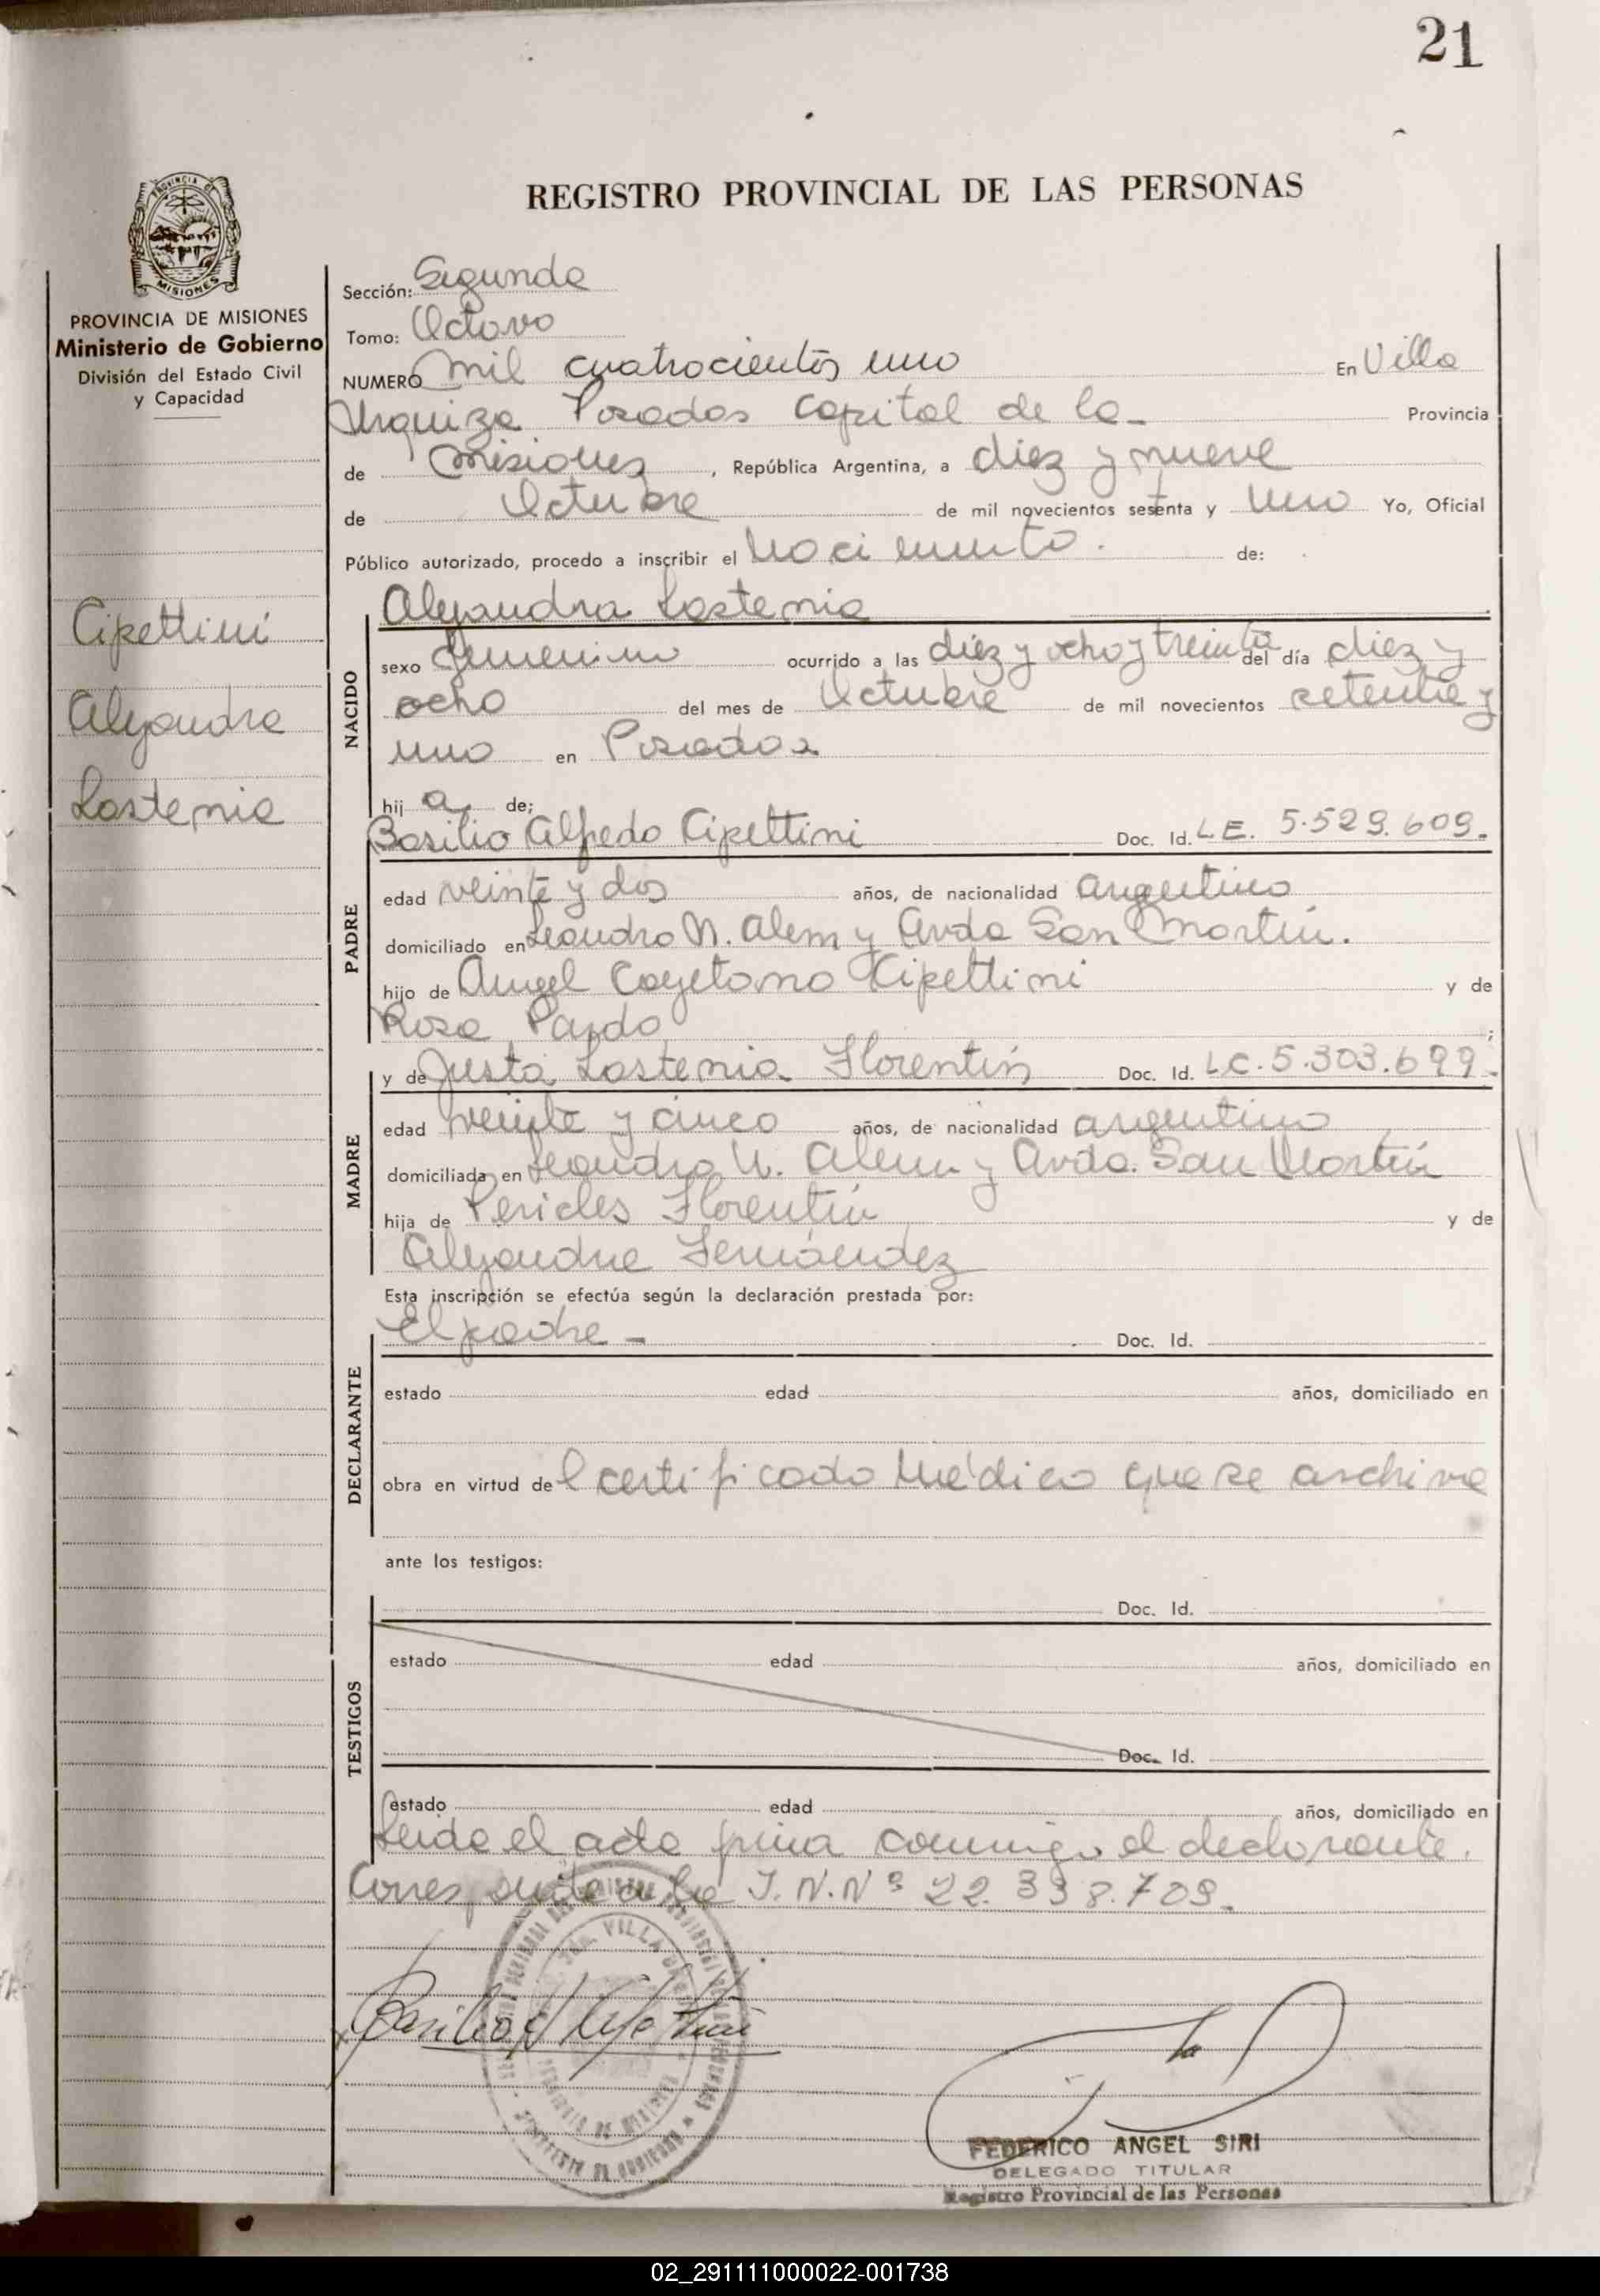 21
REGISTRO PROVINCIAL DE LAS PERSONAS
PROVINCIA DE MISIONES
Ministerio de Gobierno
División del Estado Civil
y Capacidad
Cipettini
Alejandra
Lostenia
Sección: Segunda
Tomo: Octavo
NUMERO Mil cuatrocientos uno En Villa
Urquiza Posadas Capital de la - Provincia
de Misiones, República Argentina, a diez y nueve
de Octubre de mil novecientos sesenta y uno Yo, Oficial
Público autorizado, procedo a inscribir el Nacimiento. de:
NACIDO
Alejandra Lostenia
sexo femenino ocurrido a las diez y ocho y treinta del día diez y
ocho del mes de Octubre de mil novecientos setenta y
uno en Posadas
hij a de;
PADRE
Basilio Alfredo Cipettini Doc. Id. L.E. 5.529.609.
edad veinte y dos años, de nacionalidad argentino
domiciliado en Leandro N. Alem y Avda San Martín.
hijo de Angel Cayetano Cipettini y de
Rosa Pardo ;
MADRE
y de Justa Lostenia Florentín Doc. Id. L.C. 5.303.699.
edad veinte y cinco años, de nacionalidad argentina
domiciliada en Leandro N. Alem y Avda. San Martín
hija de Pericles Florentín y de
Alejandra Fernández
DECLARANTE
Esta inscripción se efectúa según la declaración prestada por:
El padre - Doc. Id.
estado edad años, domiciliado en
obra en virtud de l certificado Médico que se archiva
ante los testigos:
TESTIGOS
Doc. Id.
estado edad años, domiciliado en
Doc. Id.
estado edad años, domiciliado en
Leida el acta firma conmigo el declarante.
Corresponde a la I.N.Nº 22.338.709.
FEDERICO ANGEL SIRI
DELEGADO TITULAR
Registro Provincial de las Personas
02_291111000022-001738